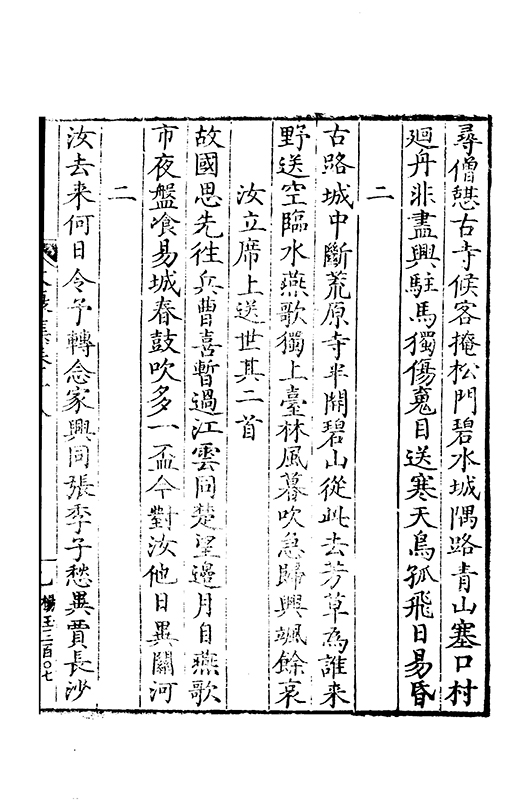 尋僧憇古寺候客掩松門碧水城隅路青山塞口村
廻丹非盡興駐馬獨傷嵬目送寒天鳥孤飛日易昏
二
古路城中斷荒原寺半開碧山從此去芳草為誰來
野送空臨水燕歌獨上臺林風暮吹急歸興颯餘哀
汝立席上送世其二首
故國思先往兵曹喜暫過江雲同楚望邊月自燕歌
市夜盤飡易城春鼓吹多一盃今對汝他日異關河
二
汝去來何日令予轉念家興同張季子愁異賈長沙
楊玉二百〇七